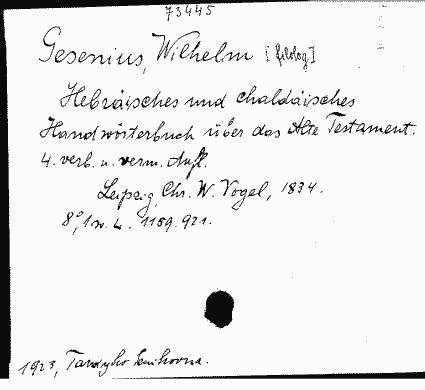 73445
Gesenius, Wilhelm [filolog]
Hebräisches und chaldäisches
Handwörterbuch über das Alte Testament.
4. verb. u. verm. Aufl.
Leipzig, Chr. W. Vogel, 1834.
8°, 1189.921.
1923,